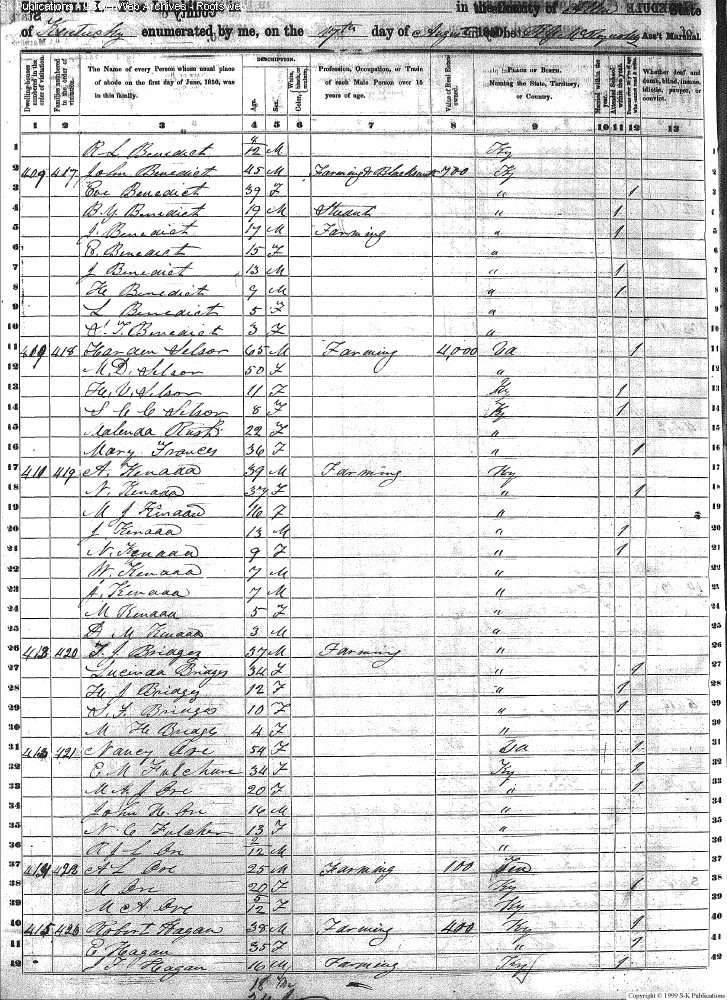 of Kentucky enumerated by me, on the 17th day of August 1850. Ass't Marshal.
Dwelling-houses numbered in the order of visitation.
Families numbered in the order of visitation.
The Name of every Person whose usual place of abode on the first day of June, 1850, was in this family.
DESCRIPTION.
Age.
Sex.
White, black, or mulatto.
Color
Profession, Occupation, or Trade of each Male Person over 15 years of age.
Value of Real Estate owned.
PLACE OF BIRTH. Naming the State, Territory, or Country.
Married within the year.
Attended School within the year.
Whether deaf and dumb, blind, insane, idiotic, pauper, or convict.
1 2 3 4 5 6 7 8 9 10 11 12 13
1 R L Benedict 4/12 M Ky
2 409 417 John Benedict 45 M Farming & Blacksmith 700 Ky
3 Eve Benedict 39 F " 1
4 B. Y. Benedict 19 M Student " 1
5 J. Benedict 17 M Farming " 1
6 E. Benedict 15 F "
7 J Benedict 13 M " 1
8 H. Benedict 9 M " 1
9 L Benedict 5 F "
10 T. Benedict 3 F "
11 418 Harden Selson 65 M Farming 4,000 Va 1
12 M. D. Selson 50 F "
13 H. V. Selson 11 F Ky 1
14 S C C Selson 8 F Ky 1
15 Malenda Rush 22 F "
16 Mary Frances 36 F " 1
17 411 419 A. Kenada 39 M Farming Ky
18 N. Kenada 37 F " 1
19 M J Kenada 16 F "
20 J Kenada 13 M " 1
21 N. Kenada 9 F " 1
22 W. Kenada 7 M "
23 A. Kenada 7 M "
24 M Kenada 5 F "
25 D. M Kenada 3 M "
26 413 420 T. J Bridges 37 M Farming "
27 Lucinda Bridges 34 F " 1
28 H J Bridges 12 F " 1
29 S. F. Bridges 10 F " 1
30 M H Bridges 4 F "
31 421 Nancy Ore 54 F Va 1
32 E. M Fulcher 34 F Ky 1
33 M A J Ore 20 F " 1
34 John H. Ore 16 M "
35 N. C Fulcher 13 F "
36 R J L Ore 2/12 M "
37 414 422 A L Ore 25 M Farming 100 Ten
38 M Ore 20 F Ky 1
39 M A Ore 5/12 F Ky
40 415 423 Robert Hagan 38 M Farming 400 Ky 1
41 E Hagan 35 F " 1
42 J T Hagan 16 M Farming Ky 1
Copyright © 1999 S-K Publications